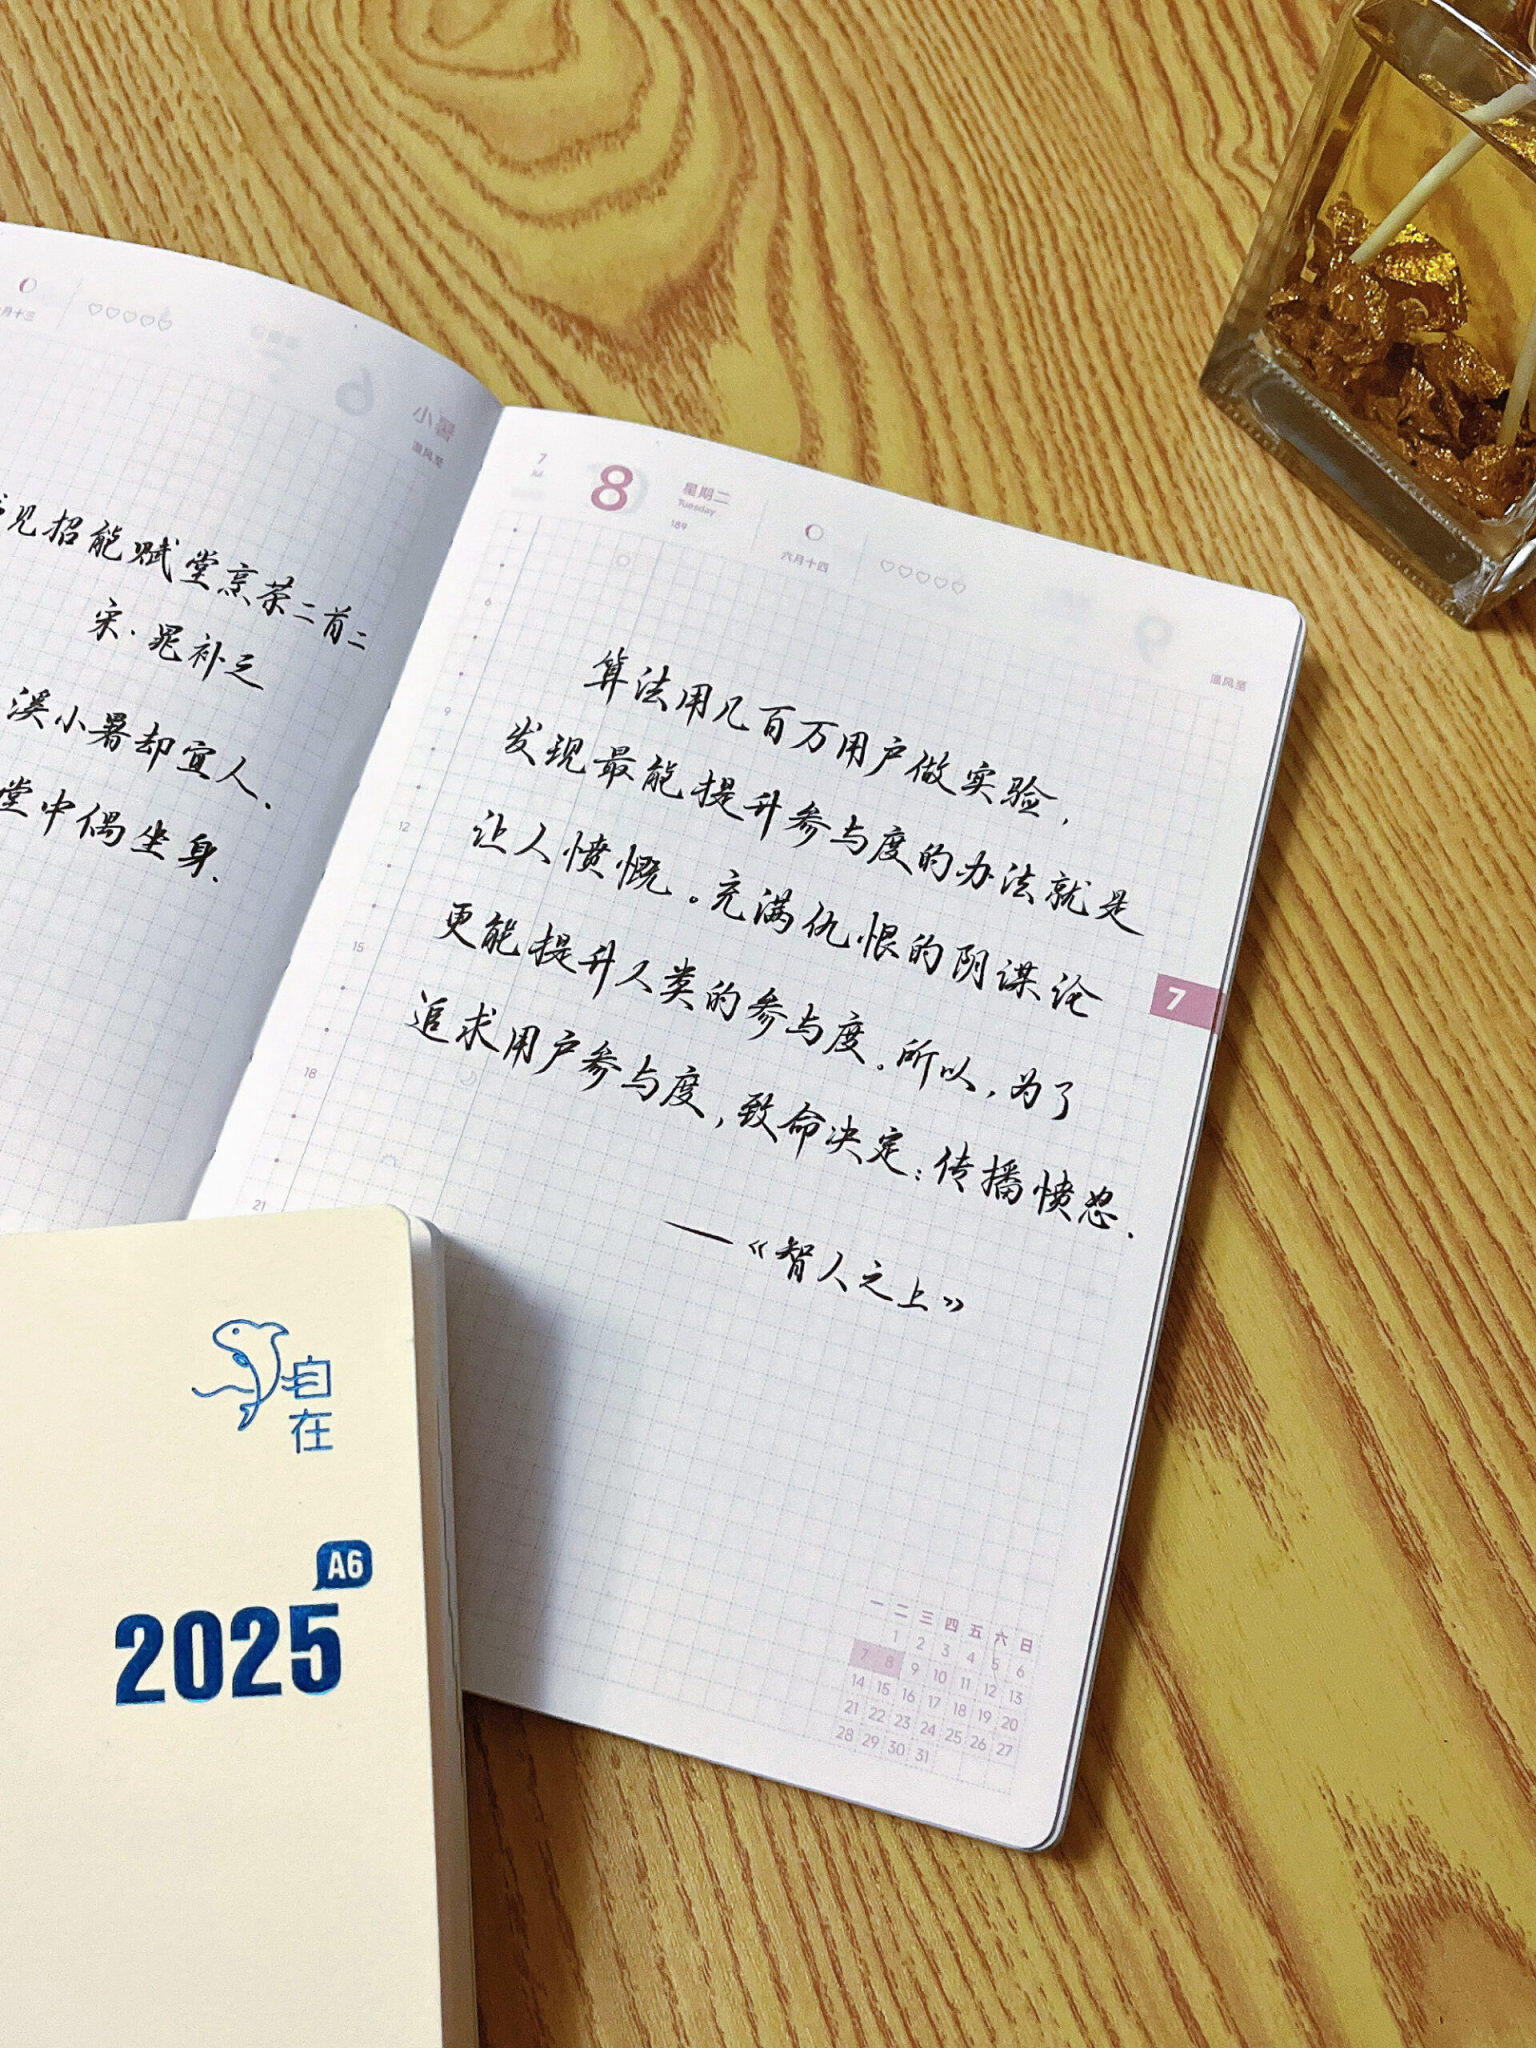 月十三
小暑
温风至
见招能赋堂烹茶二首二
宋.晁补之
溪小暑却宜人.
堂中偶坐身.
7
Jul
8
星期二
Tuesday
189
六月十四
温风至
6
9
12
15
18
21
算法用几百万用户做实验,
发现最能提升参与度的办法就是
让人愤慨。充满仇恨的阴谋论
更能提升人类的参与度。所以,为了
追求用户参与度,致命决定:传播愤怒.
——《智人之上》
7
一 二 三 四 五 六 日
1 2 3 4 5 6
7 8 9 10 11 12 13
14 15 16 17 18 19 20
21 22 23 24 25 26 27
28 29 30 31
自在
A6
2025